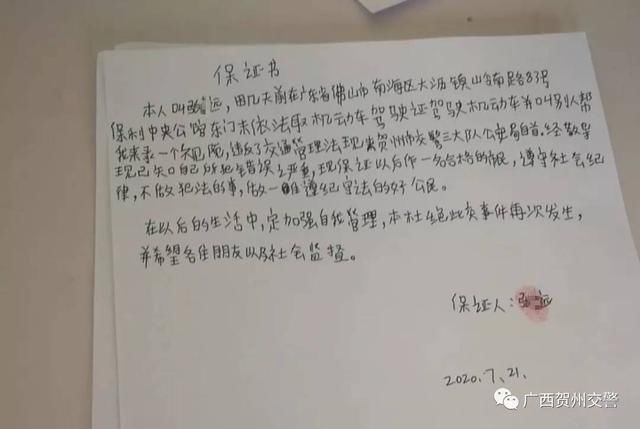 保证书
本人叫张远,因几天前在广东省佛山市南海区大沥镇山南路83号
保利中央公馆东门未依法取机动车驾驶证驾驶机动车并叫别人帮
我来录一个短视,违反了交通管理法现来贺州市交警三大队公安局自首。经教导
现已知自己所犯错误之严重,现保证以后作一名合格的市民,遵守社会纪
律,不做犯法的事,做一唯遵纪守法的好公民。
在以后的生活中,定加强自我管理,本杜绝此类事件再次发生,
并希望各位朋友以及社会监督。
保证人:张远
2020.7.21.
广西贺州交警